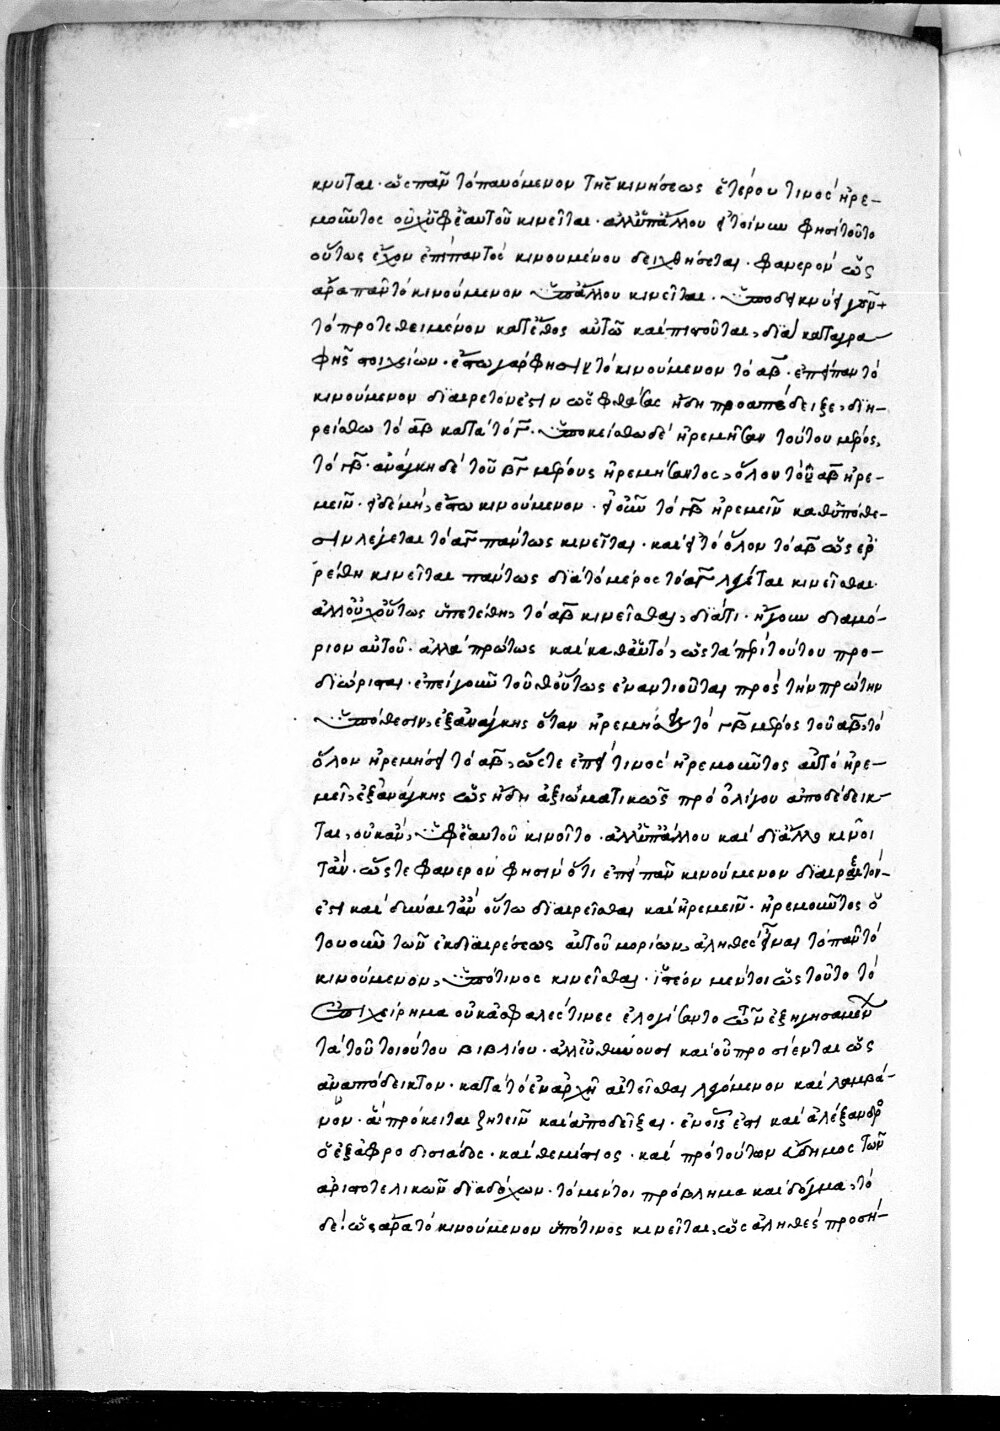 κνυται· ὡς πᾶν τὸ παυόμενον τῆς κινήσεως ἑτέρου τινὸς ἠρε-
μοῦντος οὐχ ὑφ ἑαυτοῦ κινεῖται· ἀλλ ὑπ ἄλλου εἰ τοίνυν φησὶ τοῦτο
οὕτως ἔχον ἐπὶ παντὸς κινουμένου δειχθήσεται· φανερὸν ὡς
ἄρα πᾶν τὸ κινούμενον ὑπ ἄλλου κινεῖται· ὑποδεικνύει γοῦν
τὸ προτεθειμένον κατ ἔθος αὐτῶ καὶ πιστοῦται, διὰ καταγρα
φῆς στοιχείων· ἔστω γάρ φησιν τὸ κινούμενον τὸ αβ· ἐπεὶ πᾶν τὸ
κινούμενον διαιρετόν ἐστιν ὡς φθάσας ἤδη προαπέδειξε, διη-
ρείσθω τὸ αβ κατὰ τὸ γ· ὑποκείσθω δὲ ἠρεμῆσαν τούτου μέρος,
τὸ γβ· ἀνάγκη δὲ τοῦ βγ μέρους ἠρεμήσαντος, ὅλον τὸ αβ ἠρε-
μεῖν· εἰ δὲ μὴ, ἔστω κινούμενον· εἰ οὖν τὸ γβ ἠρεμεῖν καθ ὑπόθε-
σιν λέγεται τὸ αγ πάντως κινεῖται· καὶ εἰ τὸ ὅλον τὸ αβ ὡς ἐρ
ρέθη κινεῖται πάντως διὰ τὸ μέρος τὸ αγ λέγεται κινεῖσθαι
ἀλλ οὐχ οὕτως ὑπετέθη, τὸ αβ κινεῖσθαι, διά τι· ἤγουν διὰ μό-
ριον αὐτοῦ· ἀλλὰ πρώτως καὶ καθ αὑτό, ὡς τὰ πρὶ τούτου προ-
διώρισται· ἐπεὶ γοῦν τοῦθ οὕτως ἐναντιοῦται πρὸς τὴν πρώτην
ὑπόθεσιν, ἐξ ἀνάγκης ὅταν ἠρεμήσῃ τὸ γβ μέρος τοῦ αβ, τὸ
ὅλον ἠρεμήσει τὸ αβ, ὥστε ἐπεὶ τινὸς ἠρεμοῦντος αὐτὸ ἠρε-
μεῖ, ἐξ ἀνάγκης ὡς ἤδη ἀξιωματικῶς πρὸ ὀλίγου ἀποδέδεικ
ται, οὐκ ἂν, ὑφ ἑαυτοῦ κινοῖτο· ἀλλ ὑπ ἄλλου καὶ δι ἄλλο κινοῖ
τ ἄν· ὥστε φανερὸν φησὶν ὅτι ἐπεὶ πᾶν κινούμενον διαιρετόν
ἐστι καὶ δύναιτ ἂν οὕτω διαιρεῖσθαι καὶ ἠρεμεῖν· ἠρεμοῦντος ὁ
τουοῦν τῶν ἐκ διαιρέσεως αὐτοῦ μορίων, ἀληθὲς εἶναι τὸ πᾶν τὸ
κινούμενον, ὑπό τινος κινεῖσθαι· ἰστέον μέντοι ὡς τοῦτο τὸ
ἐπιχείρημα οὐκ ἀσφαλές τινες ἐλογίσαντο τῶν ἐξηγησαμένων
τὰ τοῦ τοιούτου βιβλίου· ἀλλ εὐθύνουσι καὶ οὐ προσίενται ὡς
ἀναπόδεικτον· κατὰ τὸ ἐν ἀρχῇ αἰτεῖσθαι λεγόμενον καὶ λαμβά-
νον· ἃ πρόκειται ζητεῖν καὶ ἀποδεῖξαι· ἐν οἷς ἐστι καὶ ἀλέξανδρος
ὁ ἐξ ἀφροδισιάδος· καὶ θεμίστιος· καὶ πρὸ τούτων εὔδημος τῶν
ἀριστοτελικῶν διαδόχων· τὸ μέντοι πρόβλημα καὶ δόγμα, τὸ
δέ! ὡς ἄρα τὸ κινούμενον ὑπό τινος κινεῖται, ὡς ἀληθὲς προσή-